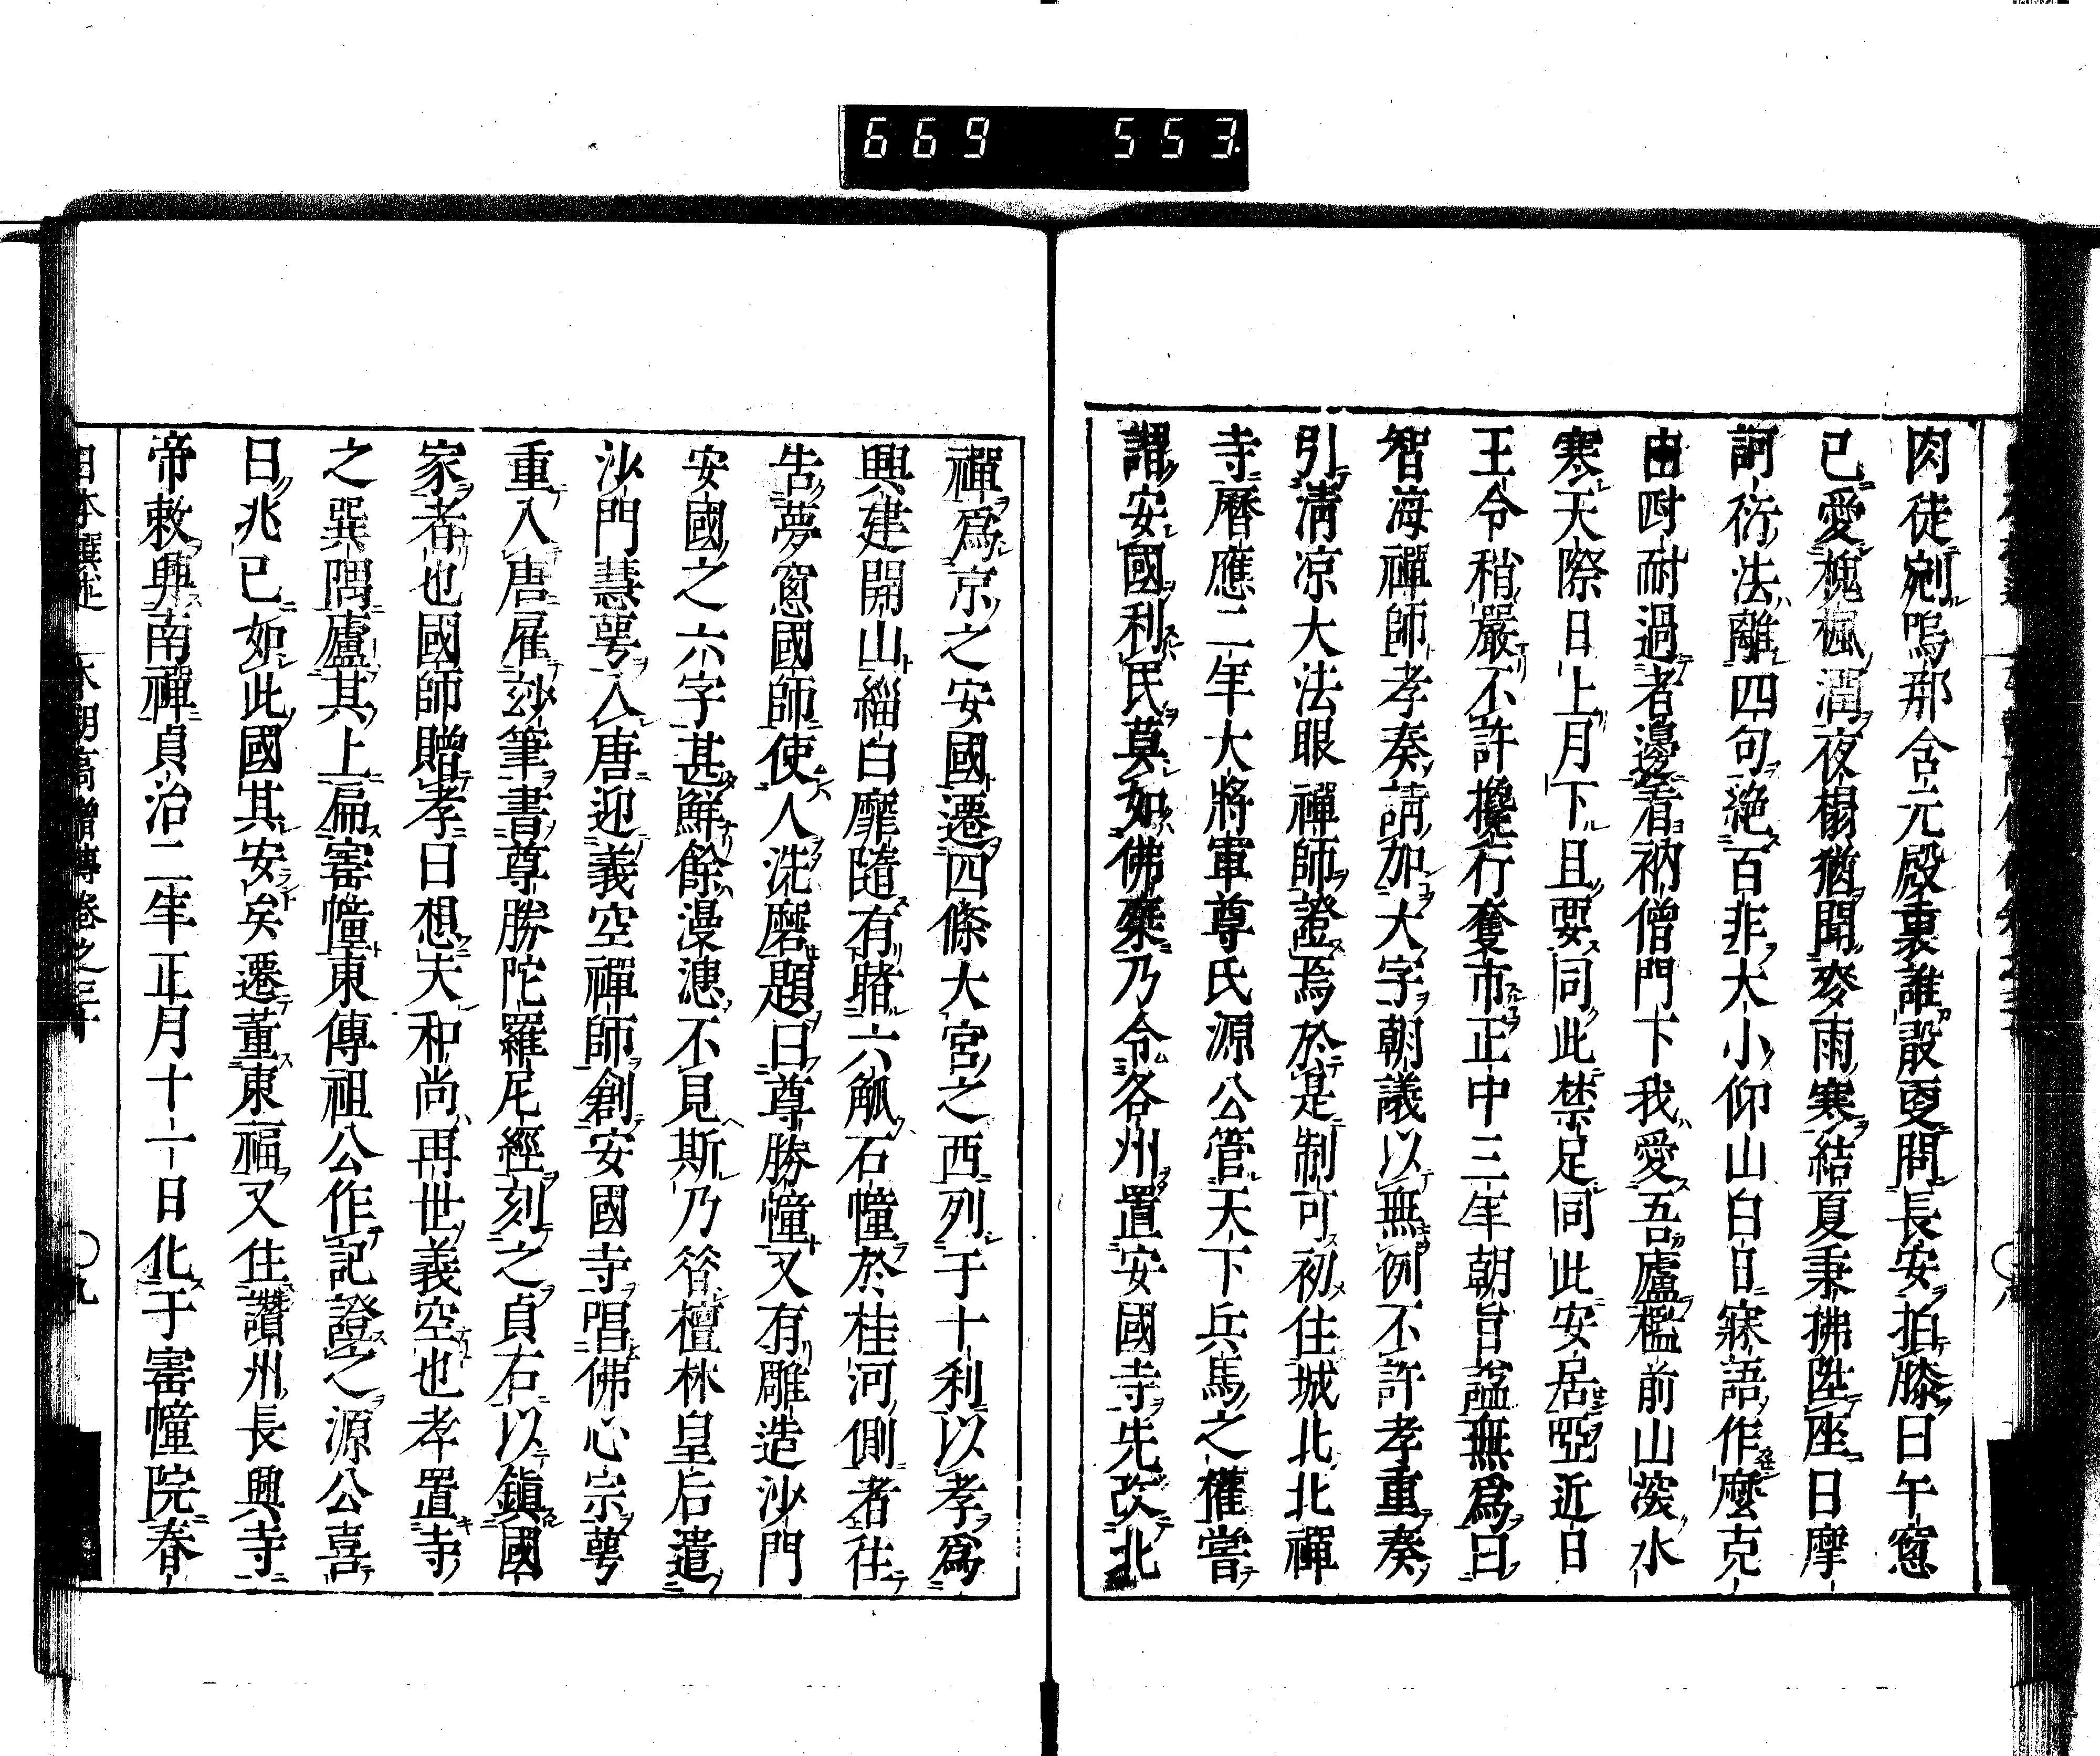 669 553
肉徒剜嗚那含元殿裏誰散更問長安拍膝曰午窻
已愛槐楓潤夜榻猶聞麥雨寒結夏秉拂陞座曰摩
訶衍法離四句絶百非大小仰山白日寐語作麼克
由叵耐過者邊著衲僧門下我愛吾廬檻前山深水
寒天際日上月下且要同此禁足同此安居啞近日
王令稍嚴不許攙行奪市正中三年朝旨諡無爲曰
智海禪師孝奏請加大字朝議以無例不許孝重奏
引淸凉大法眼禪師證焉於是制可初住城北北禪
寺曆應二年大將軍尊氏源公管天下兵馬之權嘗
謂安國利民莫如佛乘乃令各州置安國寺先改北
禪爲京之安國遷四條大宮之西列于十刹以孝爲
興建開山緇白靡隨有賭六觚石幢於桂河側者往
告夢窻國師使人洗磨題曰尊勝幢又有雕造沙門
安國之六字甚鮮餘漫漶不見斯乃答檀林皇后遣
沙門慧萼入唐迎義空禪師創安國寺唱佛心宗萼
重入唐雇玅筆書尊勝陀羅尼經刻之貞石以鎭國
家者也國師贈孝曰想夫和尚再世義空也孝置寺
之巽隅廬其上扁窰幢東傳祖公作記證之源公喜
曰兆已如此國其安矣遷董東福又住讚州長興寺
帝敕興南禪貞治二年正月十一日化于窰幢院春
日本撰述 本朝高僧傳卷之三十 〇九